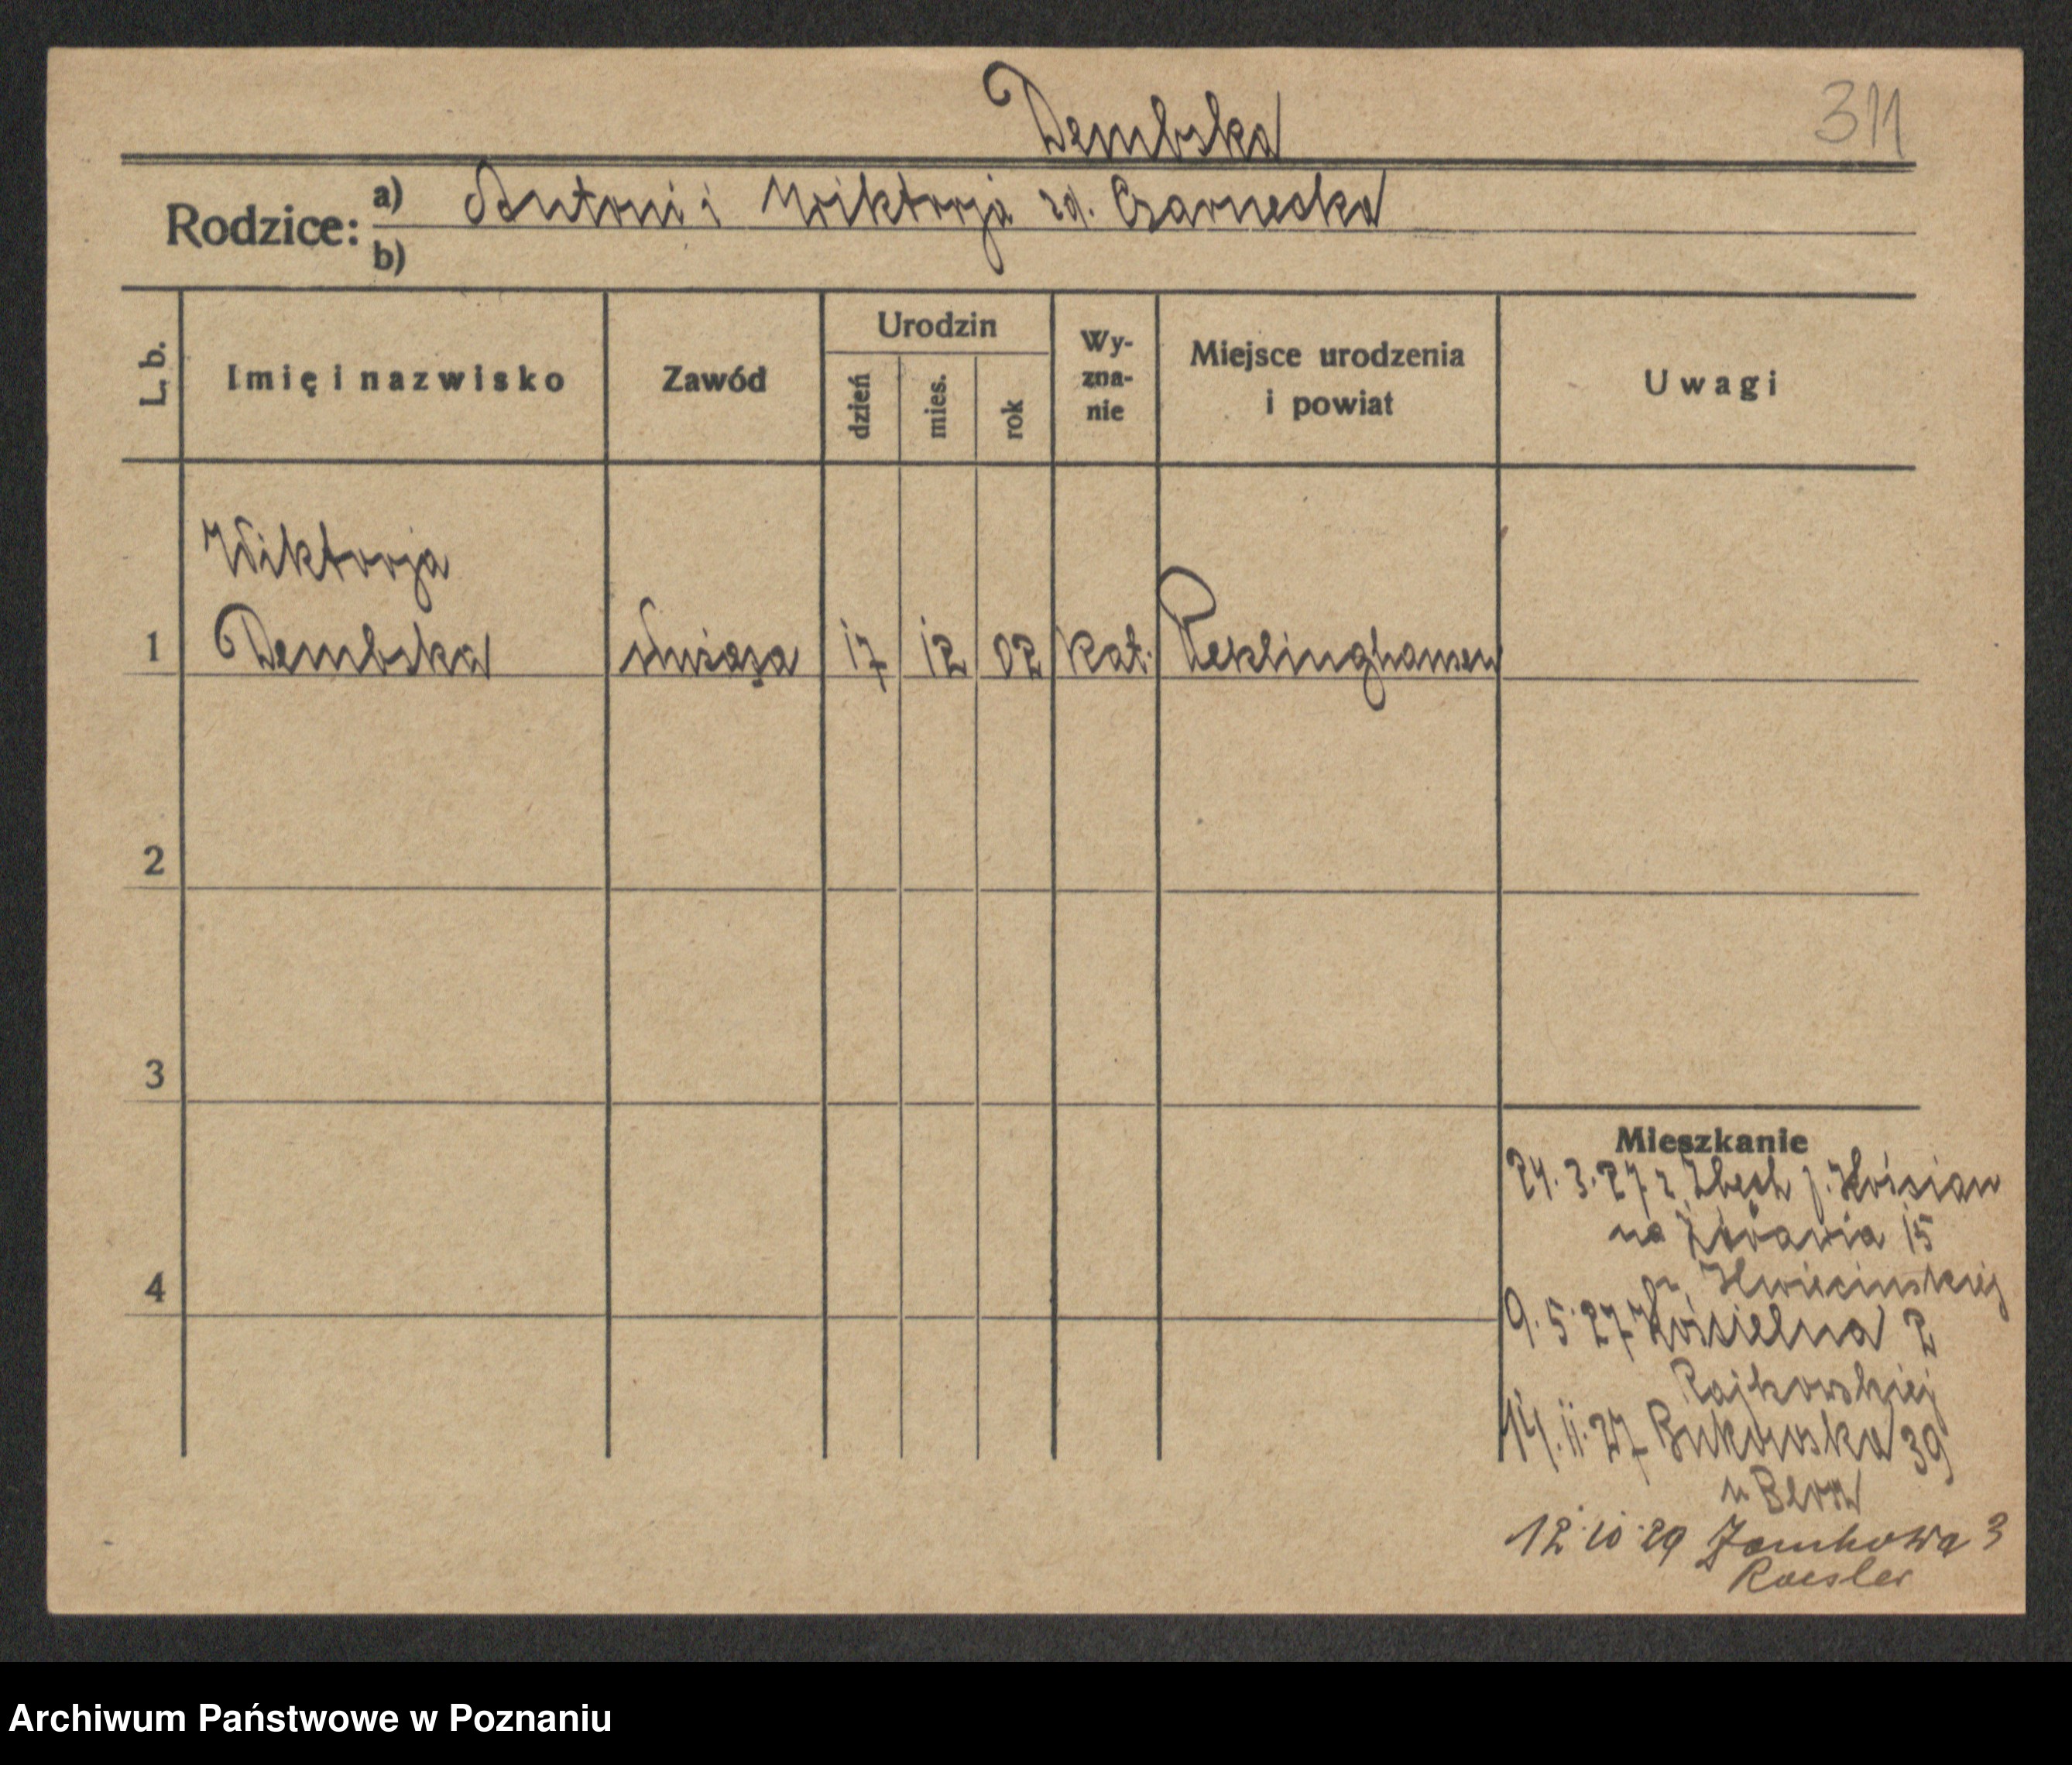 Dembska
311
Rodzice: a) Antoni i Wiktorja zd. Czarnecka
b)
L. b.
Imię i nazwisko
Zawód
Urodzin
dzień
mies.
rok
Wy-
zna-
nie
Miejsce urodzenia
i powiat
Uwagi
Wiktorja
1 Dembska służąca 17 12 02 kat. Reklinghausen
2
3
4
Mieszkanie
24.3.27 z Zbęch p. Kościan
na 15
Kwiecińskiej
9.5.27 Kościelna 2
Rajkowskiej
14.11.27 Bukowska 39
u
12.10.29 Zamkowa 3
Roesler
Archiwum Państwowe w Poznaniu